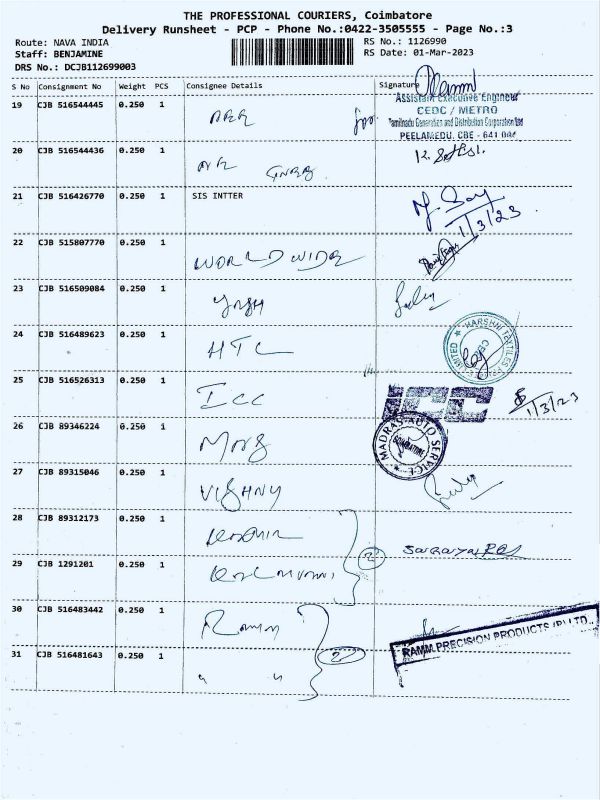 THE PROFESSIONAL COURIERS, Coimbatore
Delivery Runsheet - PCP - Phone No.:0422-3505555 - Page No.:3
Route: NAVA INDIA
RS No.: 1126990
Staff: BENJAMINE
RS Date: 01-Mar-2023
DRS No.: DCJB112699003
S No Consignment No Weight PCS Consignee Details Signature
19 CJB 516544445 0.250 1
Assistant Executive Engineer
CEDC / METRO
Tamilnadu Generation and Distribution Corporation Ltd
PEELAMEDU, CBE - 641 004
20 CJB 516544436 0.250 1
21 CJB 516426770 0.250 1 SIS INTTER
1/3/23
22 CJB 515807770 0.250 1 WORLD WIDE
23 CJB 516509084 0.250 1 YASH
24 CJB 516489623 0.250 1 HTC
HARSHNI TEXTILES PRIVATE LIMITED
CBE
25 CJB 516526313 0.250 1 ICC
ICC
1/3/23
26 CJB 89346224 0.250 1
MADRAS AUTO SERVICE
COIMBATORE
27 CJB 89315046 0.250 1 VISHNU
28 CJB 89312173 0.250 1
2
29 CJB 1291201 0.250 1
30 CJB 516483442 0.250 1 Ramm
RAMM PRECISION PRODUCTS (P) LTD.,
2
31 CJB 516481643 0.250 1 " "